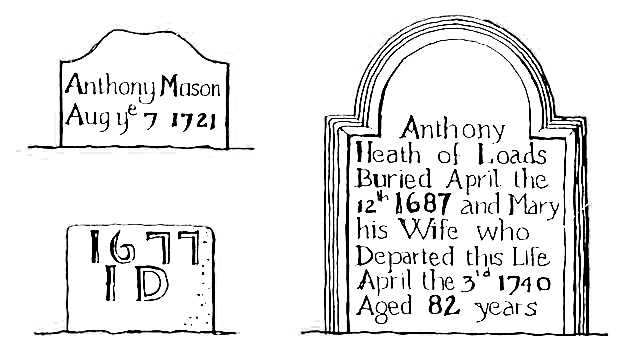 Anthony Mason
Aug yᵉ 7 1721
1677
I D
Anthony
Heath of Loads
Buried April the
12ᵗʰ 1687 and Mary
his Wife who
Departed this Life
April the 3ʳᵈ 1740
Aged 82 years